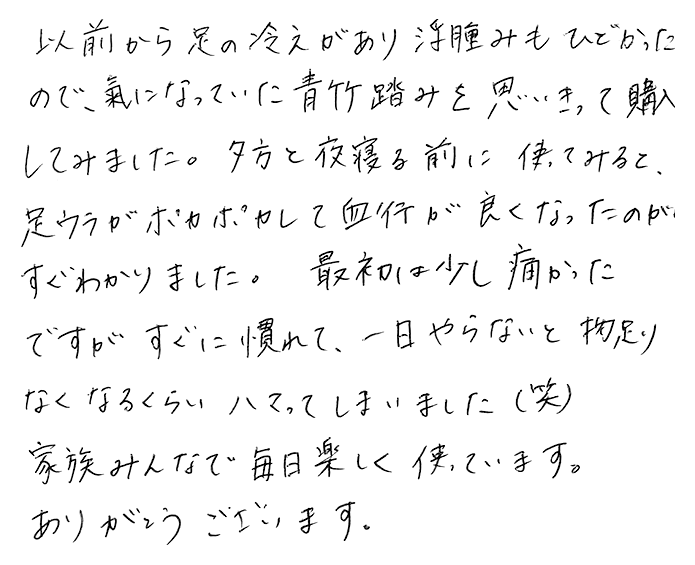 以前から足の冷えがあり浮腫みもひどかった
ので、氣になっていた青竹踏みを思いきって購入
してみました。夕方と夜寝る前に使ってみると、
足ウラがポカポカして血行が良くなったのが
すぐわかりました。 最初は少し痛かった
ですがすぐに慣れて、一日やらないと物足り
なくなるくらいハマってしまいました(笑)
家族みんなで毎日楽しく使っています。
ありがとうございます。